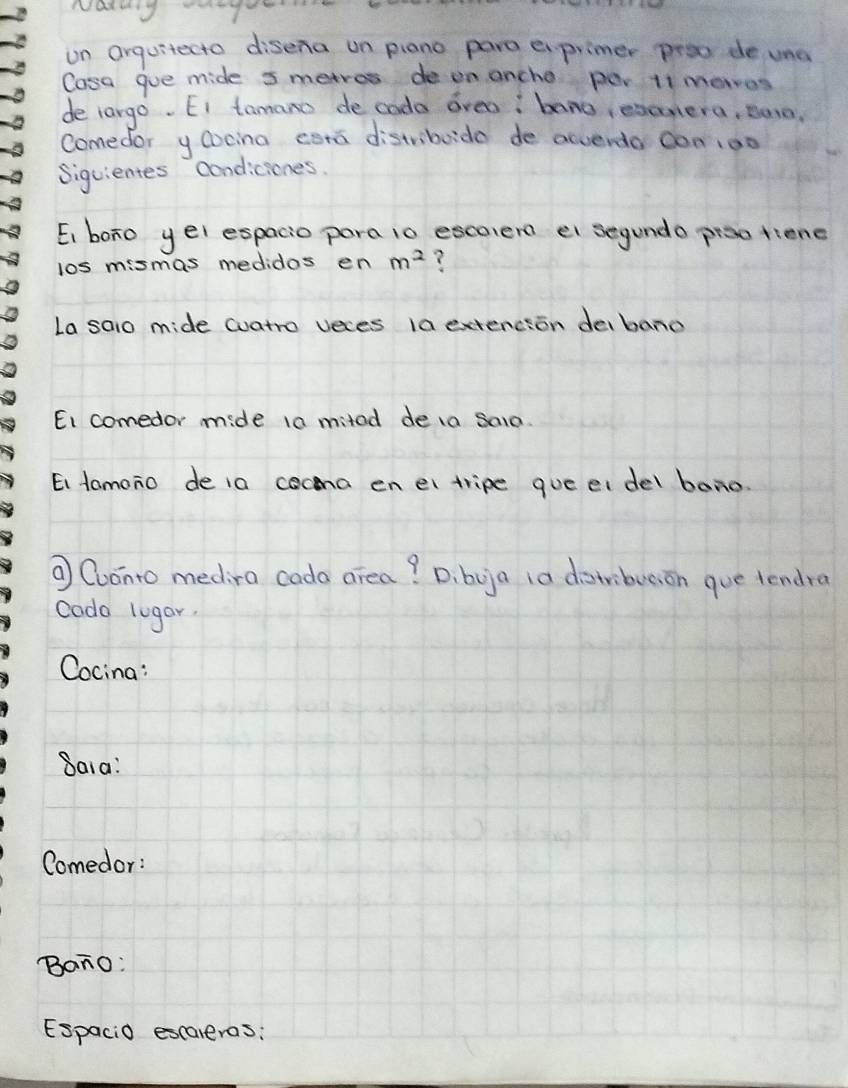 un arquitecto diseña un plano para el primer piso de una
Casa que mide 5 metros de un ancho por 11 metros
de largo. El tamaño de cada área: baño, escalera, sala,
Comedor y Cocina está distribuido de acuerdo con las
Siguientes condiciones.
El baño y el espacio para la escalera el segundo piso tiene
los mismas medidas en m²?
La sala mide cuatro veces la extención del baño
El comedor mide la mitad de la sala.
El tamaño de la cocina en el tripe que el del baño.
a) Cuánto medira cada área? Dibuja la distribución que tendra
Cada lugar.
Cocina:
Sala:
Comedor:
Baño:
Espacio escaleras: